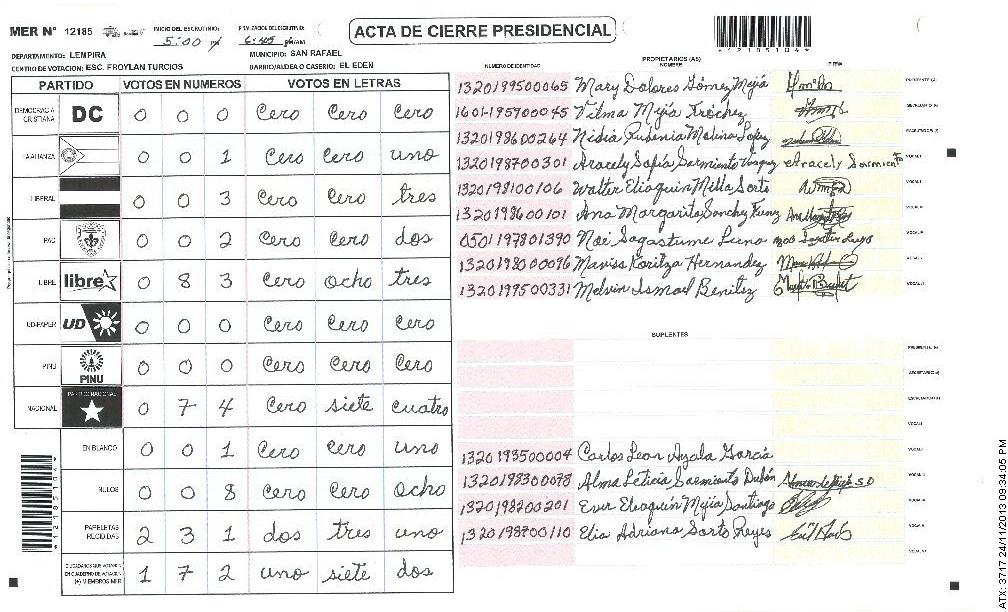 MER N° 12185
INICIO DEL ESCRUTINIO:
5:00 pm
FINALIZACION DEL ESCRUTINIO:
ACTA DE CIERRE PRESIDENCIAL
*12185104*
DEPARTAMENTO: LEMPIRA
MUNICIPIO: SAN RAFAEL
CENTRO DE VOTACION: ESC. FROYLAN TURCIOS
BARRIO/ALDEA O CASERIO: EL EDEN
PARTIDO VOTOS EN NUMEROS VOTOS EN LETRAS
DEMOCRACIA CRISTIANA DC 0 0 0 Cero Cero Cero
LA ALIANZA 0 0 1 Cero Cero uno
LIBERAL 0 0 3 Cero Cero tres
PAC 0 0 2 Cero Cero dos
LIBRE libre 0 8 3 Cero ocho tres
UD-FAPER UD 0 0 0 Cero Cero Cero
PINU PINU 0 0 0 Cero Cero Cero
NACIONAL PARTIDO NACIONAL 0 7 4 Cero siete cuatro
EN BLANCO 0 0 1 Cero Cero uno
NULOS 0 0 8 Cero Cero Ocho
PAPELETAS RECIBIDAS 2 3 1 dos tres uno
CIUDADANOS QUE VOTARON EN CUADERNO DE VOTACION (+) MIEMBROS MER 1 7 2 uno siete dos
*12185104*
PROPIETARIOS (AS)
NUMERO DE IDENTIDAD NOMBRE FIRMA
1320199500065 Mary Dolores Gómez Mejía
1601-1959-00045 Vilma Mejía Tróchez
1320198600264 Nidia Yusenia Molina Lopez
1320198700301 Aracely Sofía Sarmiento Vasquez Aracely Sarmiento
1320198100106 Walter Eliaquin Milla Sorto
1320198600101 Ana Margarita Sanchez Funez
0501197801390 Noi Sagastume
1320198000096 Koritza Hernandez
1320199500331 Melvin Ismael Benitez
SUPLENTES
1320193500004 Carlos Leon Ayala García
1320198300078 Alma Leticia Sarmiento Dubón
1320198200201 Ever Eleaquín Mejía Santiago
1320198700110 Elia Adriana Sorto Reyes
ATX: 3717 24/11/2013 09:34:05 PM